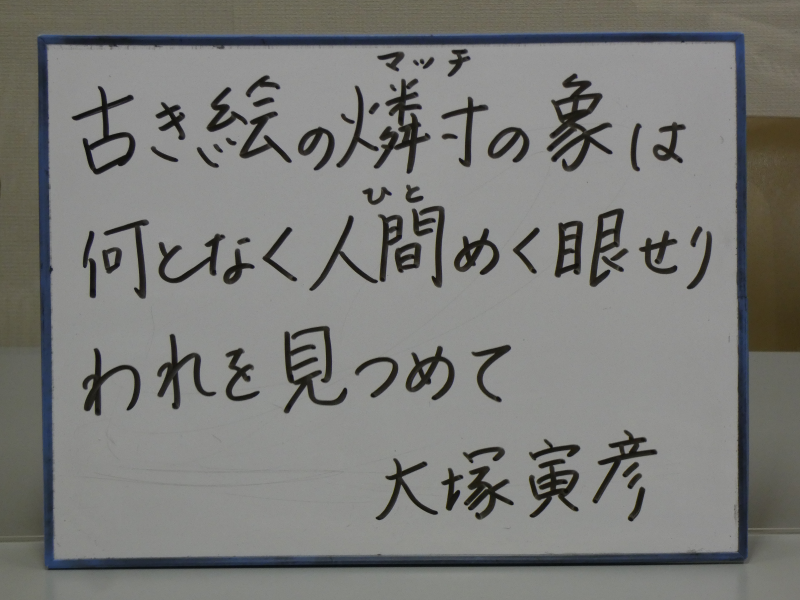 マッチ
古き絵の燐寸の象は
ひと
何となく人間めく眼せり
われを見つめて
大塚寅彦